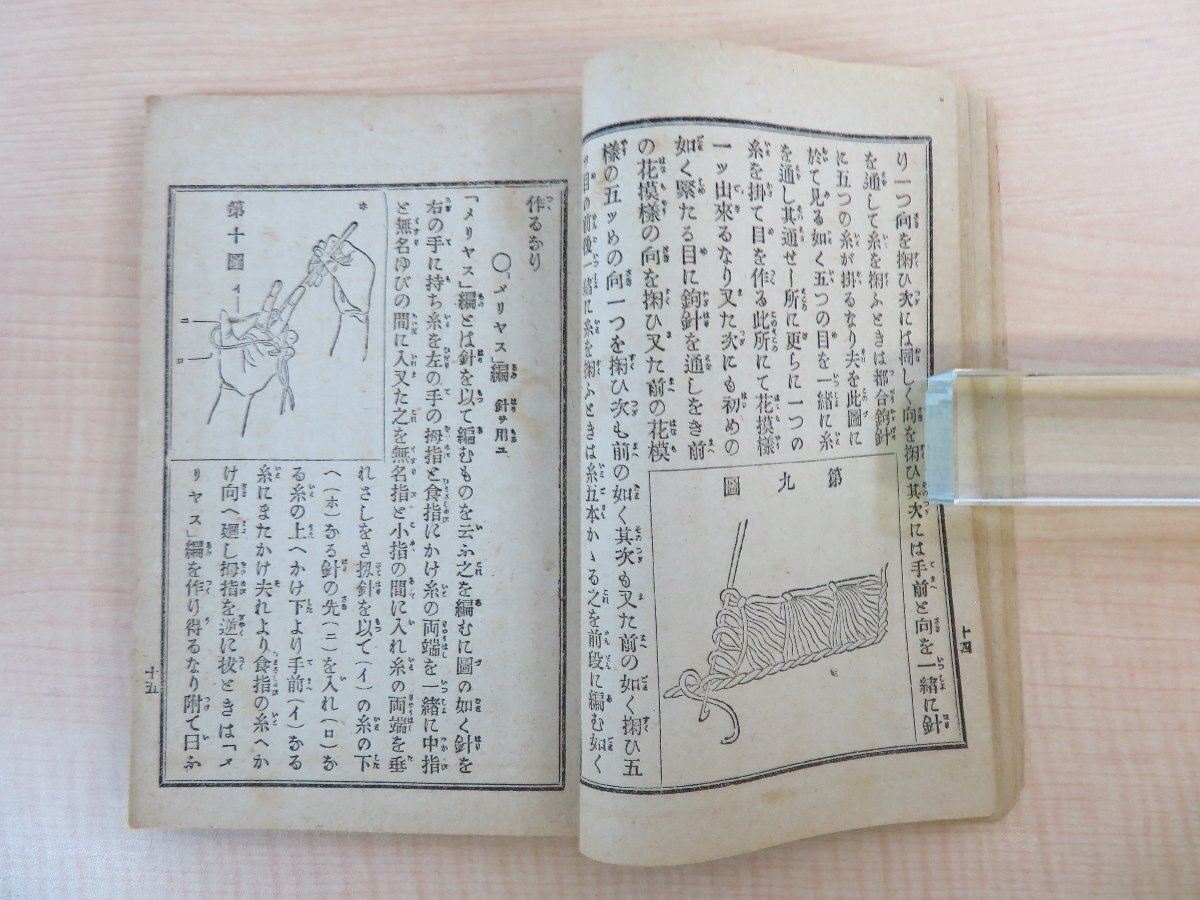 り一つ向を掬ひ次には同しく向を掬ひ其次には手前と向を一緒に針
を通して糸を掬ふときは都合鉤針
に五つの糸が掛るなり夫を此圖に
於て見る如く五つの目を一緒に糸
を通し其通せし所に更らに一つの
糸を掛て目を作る此所にて花摸樣
一ッ出來るなり又た次にも初めの
如く緊たる目に鉤針を通しをき前
の花摸樣の向を掬ひ又た前の花摸
樣の五ッめの向一つを掬ひ次も前の如く其次も又た前の如く掬ひ五
ッ目の前後一緒に糸を掬ふときは糸五本かゝる之を前段に編む如く
第九圖
十四
作るなり
○「メリヤス」編 針ヲ用ユ
「メリヤス」編とは針を以て編むものを云ふ之を編むに圖の如く針を
右の手に持ち糸を左の手の拇指と食指にかけ糸の両端を一緒に中指
と無名ゆびの間に入又た之を無名指と小指の間に入れ糸の両端を垂
れさしをき扨針を以て(イ)の糸の下
(ホ)なる針の先(ニ)を入れ(ロ)な
る糸の上へかけ下より手前(イ)なる
糸にまたかけ夫れより食指の糸へか
け向へ廻し拇指を逆に拔ときは「メ
リヤス」編を作り得るなり附て曰ふ
第十圖
ホ
イ
ニ
ロ
十五